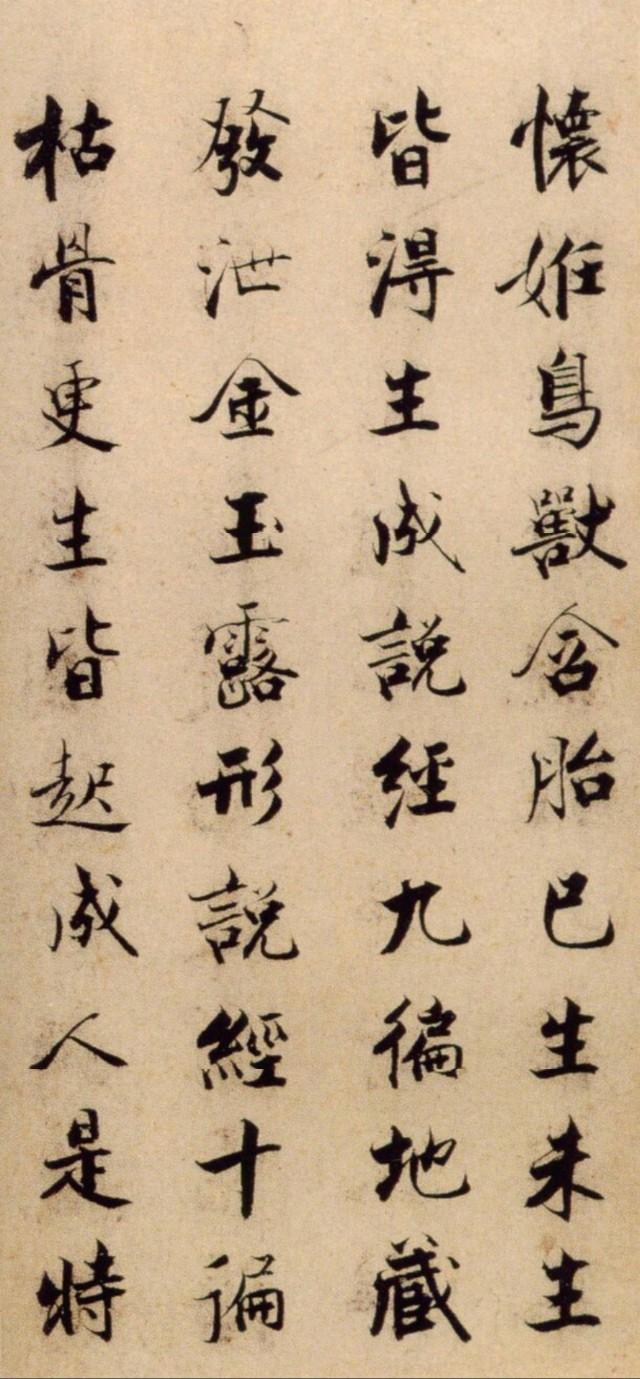 懷妊鳥獸含胎已生未生
皆得生成説經九徧地藏
發泄金玉露形説經十徧
枯骨更生皆起成人是時